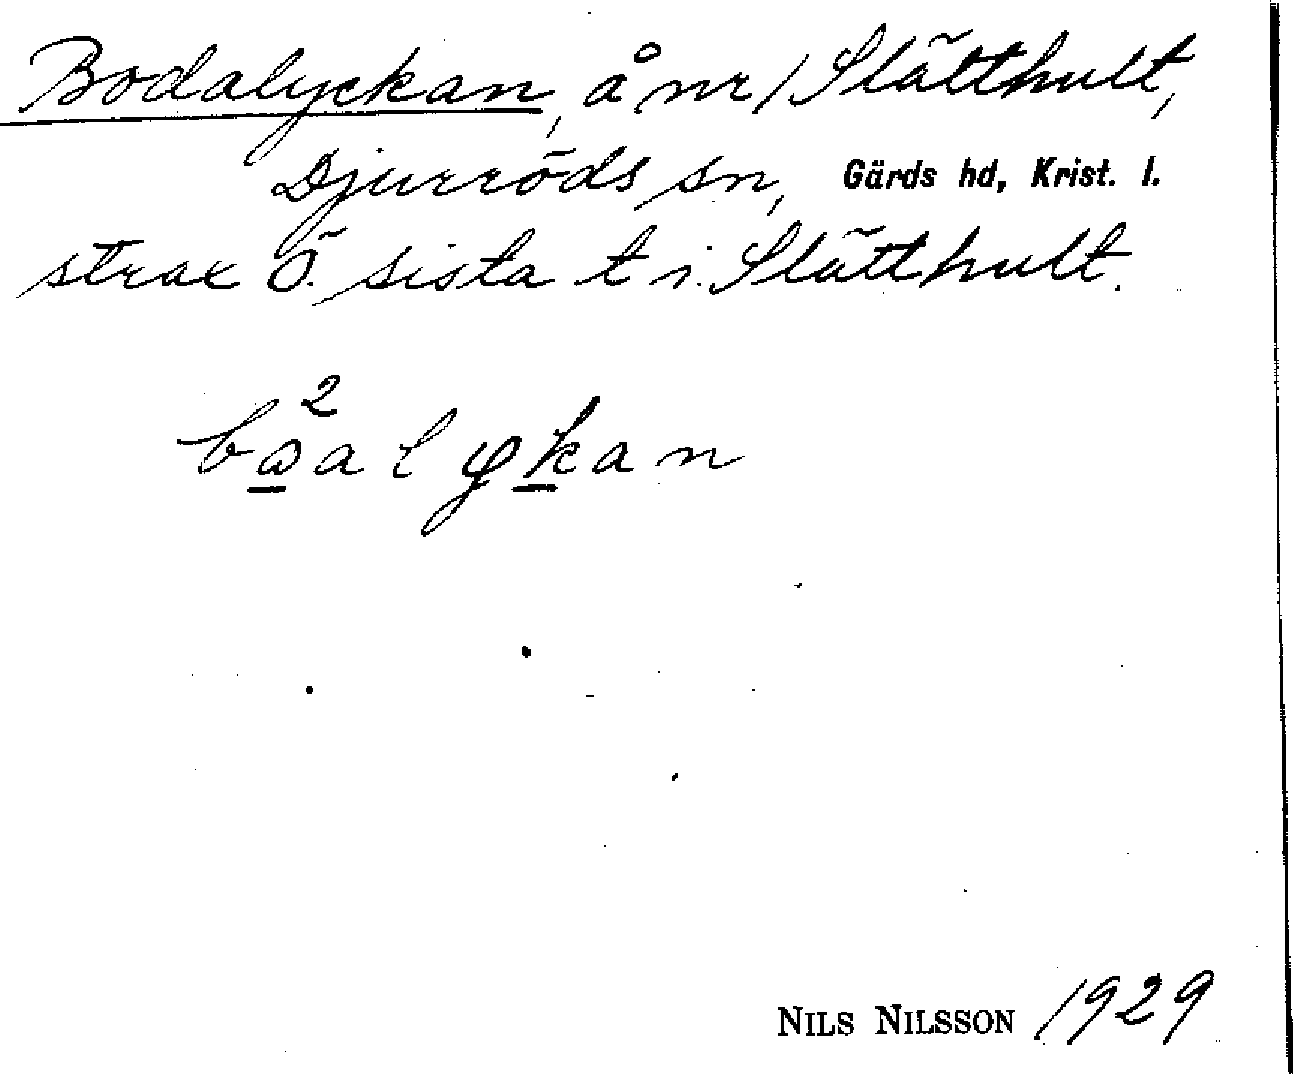 Bodalyckan, å nr 1 Slätthult,
Djurröds sn, Gärds hd, Krist. l.
strax Ö. sista t i Slätthult.
NILS NILSSON 1929